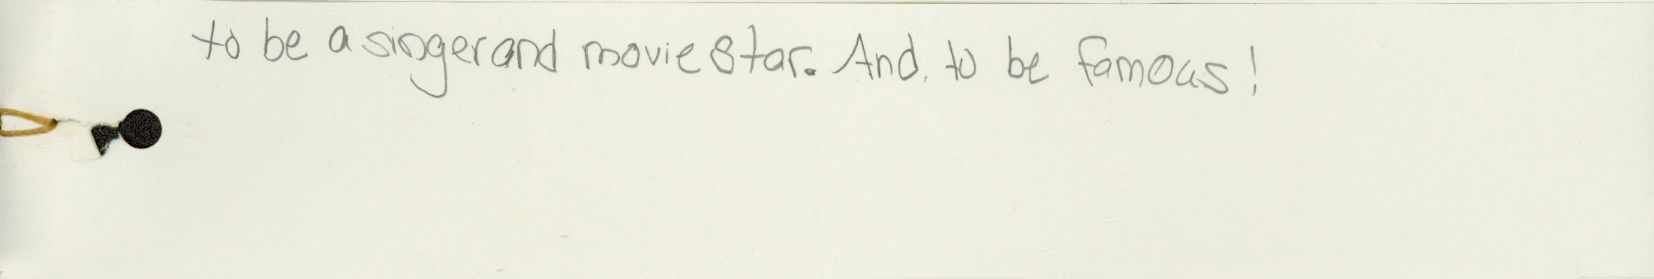 to be a singer and movie star. And. to be famous!